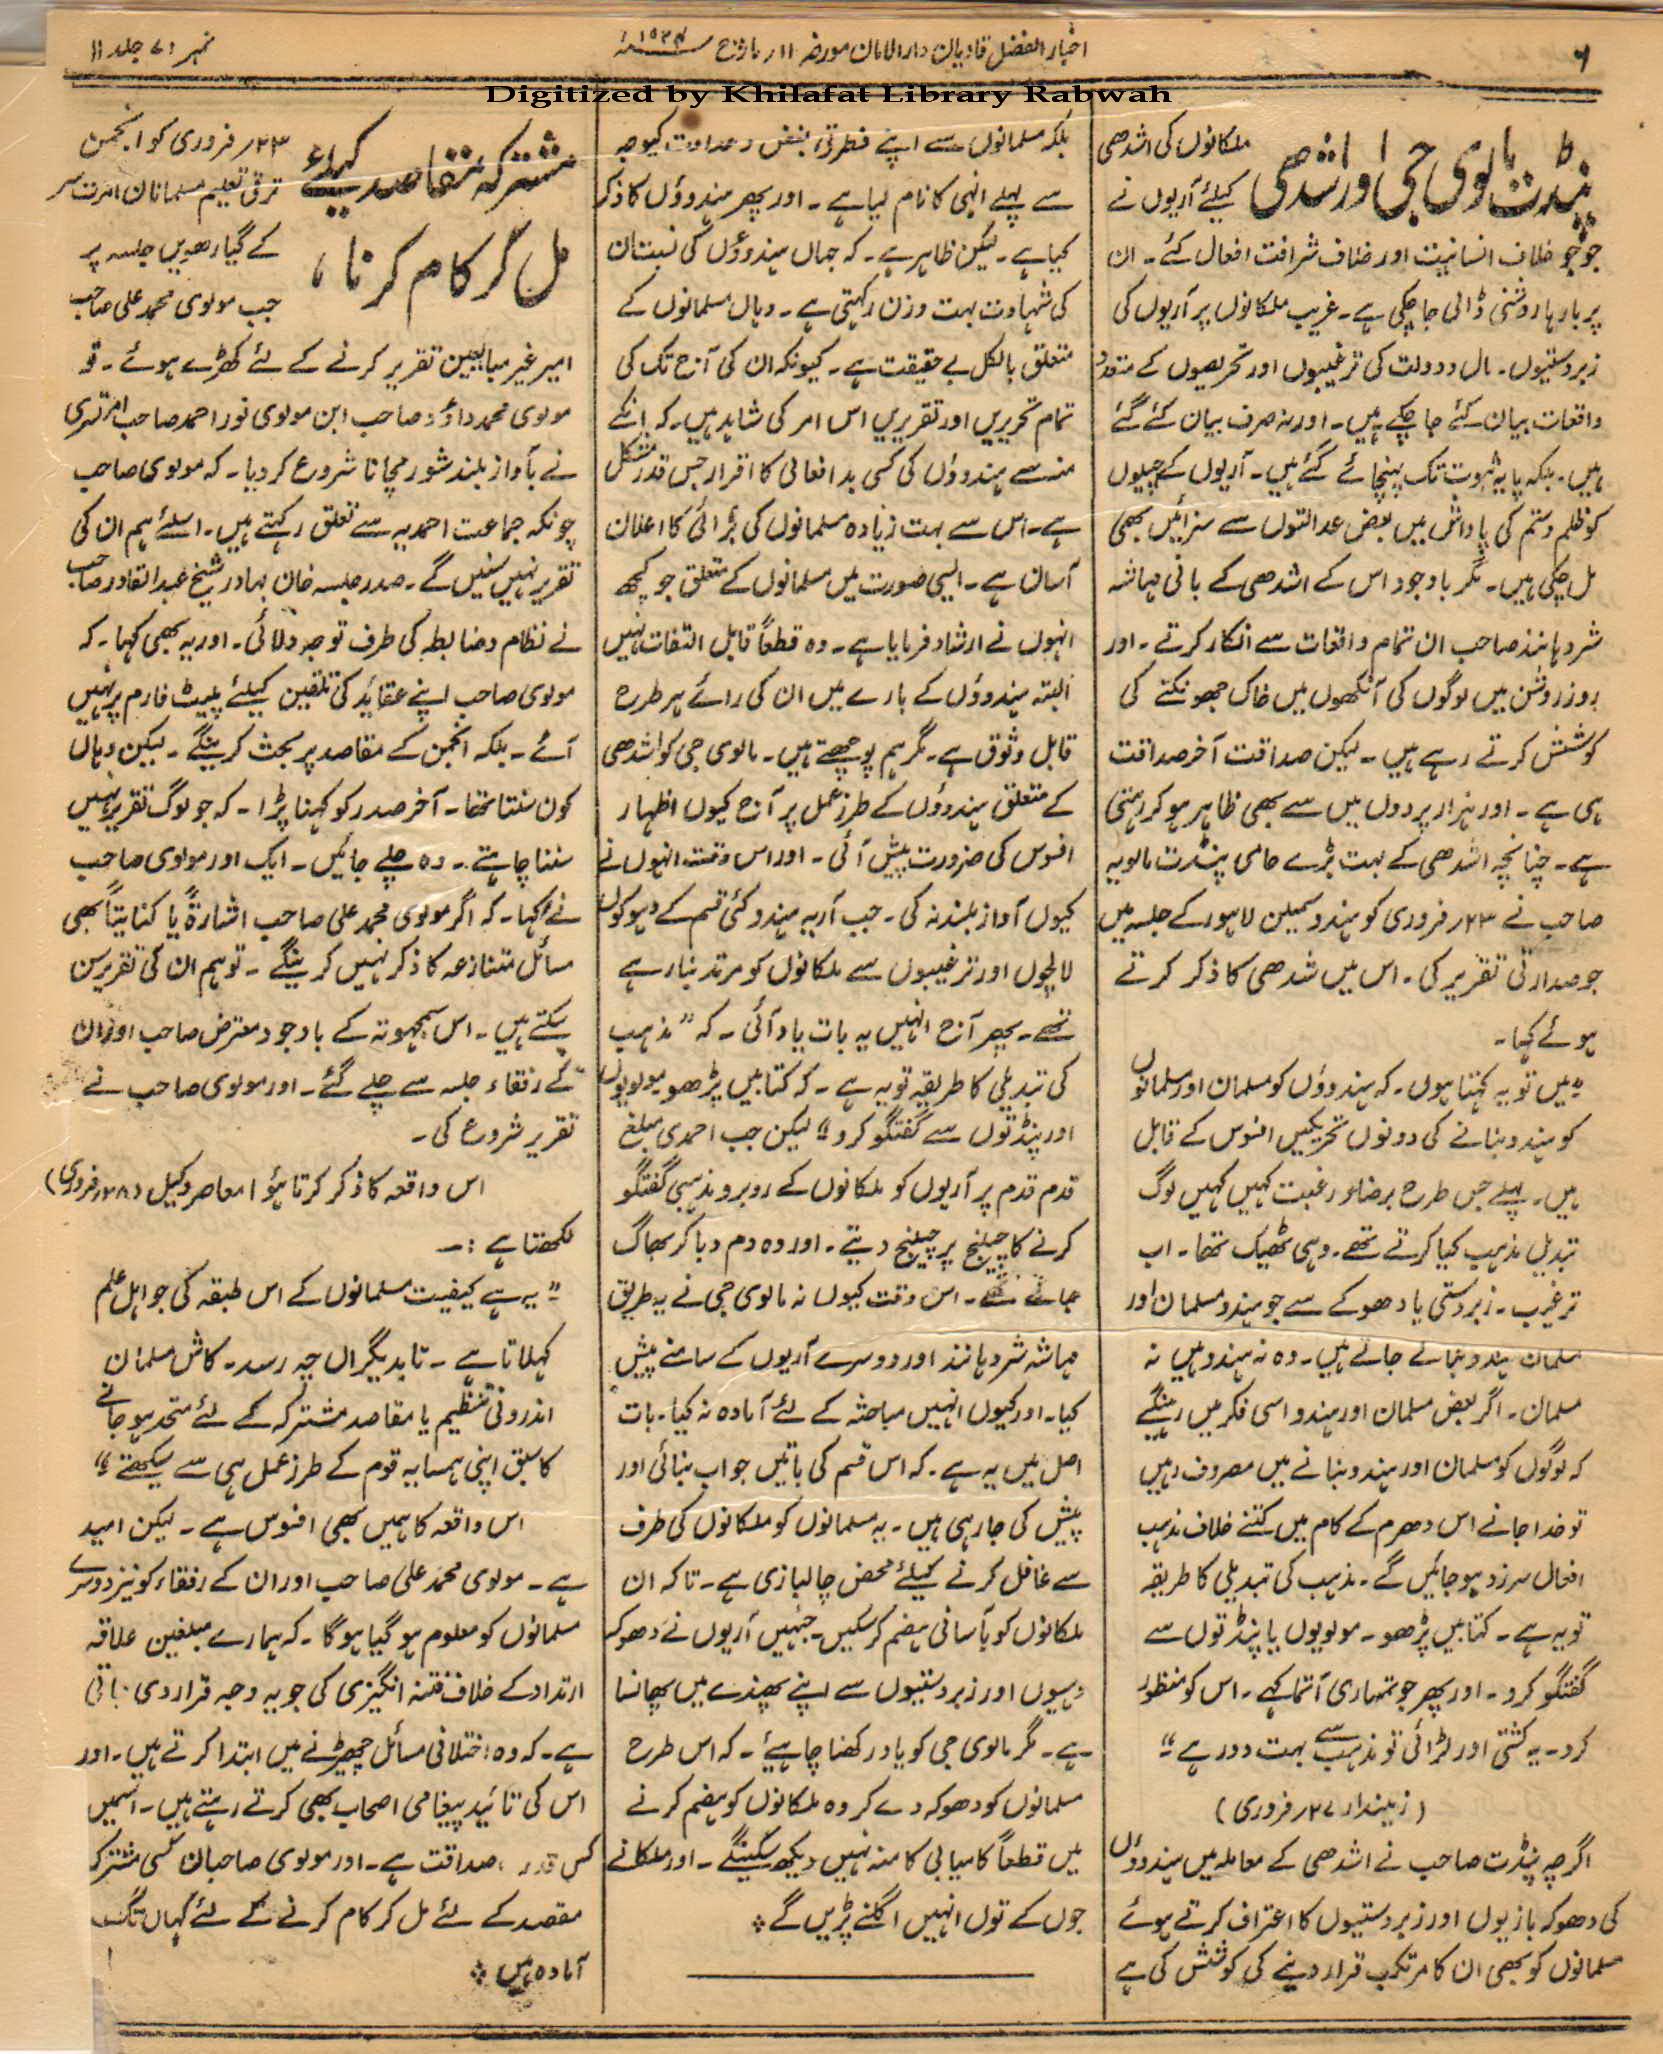 ۶
اخبار الفضل قادیان دارالامان مورخہ ۱۱ر مارچ ۱۹۲۴ء
نمبر ۷۱ جلد ۱۱
Digitized by Khilafat Library Rabwah
پنڈت مالوی جی اور اشدھی
ملکانوں کی اشدھی
کیلئے آریوں نے
جو جو خلاف انسانیت اور خلاف شرافت افعال کئے۔ ان
پر بارہا روشنی ڈالی جا چکی ہے۔ غریب ملکانوں پر آریوں کی
زبردستیوں۔ مال و دولت کی ترغیبوں اور تحریصوں کے متعدد
واقعات بیان کئے جا چکے ہیں۔ اور نہ صرف بیان کئے گئے
ہیں۔ بلکہ پایہ ثبوت تک پہنچائے گئے ہیں۔ آریوں کے چیلوں
کو ظلم و ستم کی پاداش میں بعض عدالتوں سے سزائیں بھی
مل چکی ہیں۔ مگر باوجود اس کے اشدھی کے بانی مہاشہ
شردہانند صاحب ان تمام واقعات سے انکار کرتے۔ اور
روز روشن میں لوگوں کی آنکھوں میں خاک جھونکنے کی
کوشش کرتے رہے ہیں۔ لیکن صداقت آخر صداقت
ہی ہے۔ اور ہزار پردوں میں سے بھی ظاہر ہو کر رہتی
ہے۔ چنانچہ اشدھی کے بہت بڑے حامی پنڈت مالویہ
صاحب نے ۲۳ر فروری کو ہندو سمیلن لاہور کے جلسہ میں
جو صدارتی تقریر کی۔ اس میں شدھی کا ذکر کرتے
ہوئے کہا۔
”میں تو یہ کہتا ہوں۔ کہ ہندوؤں کو مسلمان اور مسلمانوں
کو ہندو بنانے کی دونوں تحریکیں افسوس کے قابل
ہیں۔ پہلے جس طرح برضا و رغبت کہیں کہیں لوگ
تبدیل مذہب کیا کرتے تھے۔ وہی ٹھیک تھا۔ اب
ترغیب۔ زبردستی یا دھوکے سے جو ہندو مسلمان اور
مسلمان ہندو بنائے جاتے ہیں۔ وہ نہ ہندو ہیں نہ
مسلمان۔ اگر بعض مسلمان اور ہندو اسی فکر میں رہینگے
کہ لوگوں کو مسلمان اور ہندو بنانے میں مصروف رہیں
تو خدا جانے اس دھرم کے کام میں کتنے خلاف مذہب
افعال سرزد ہو جائیں گے۔ مذہب کی تبدیلی کا طریقہ
تو یہ ہے۔ کتابیں پڑھو۔ مولویوں یا پنڈتوں سے
گفتگو کرو۔ اور پھر جو تمہاری آتما کہے۔ اس کو منظور
کرو۔ یہ کشتی اور لڑائی تو مذہب سے بہت دور ہے“
(زمیندار ۲۷ر فروری)
اگرچہ پنڈت صاحب نے اشدھی کے معاملہ میں ہندوؤں
کی دھوکہ بازیوں اور زبردستیوں کا اعتراف کرتے ہوئے
مسلمانوں کو بھی ان کا مرتکب قرار دینے کی کوشش کی ہے
بلکہ مسلمانوں سے اپنے فطرتی بغض و عداوت کیوجہ
سے پہلے انہی کا نام لیا ہے۔ اور پھر ہندوؤں کا ذکر
کیا ہے۔ لیکن ظاہر ہے۔ کہ جہاں ہندوؤں کی نسبت ان
کی شہادت بہت وزن رکھتی ہے۔ وہاں مسلمانوں کے
متعلق بالکل بے حقیقت ہے۔ کیونکہ ان کی آج تک کی
تمام تحریریں اور تقریریں اس امر کی شاہد ہیں۔ کہ انکے
منہ سے ہندوؤں کی کسی بد افعالی کا اقرار جس قدر مشکل
ہے۔ اس سے بہت زیادہ مسلمانوں کی برائی کا اعلان
آسان ہے۔ ایسی صورت میں مسلمانوں کے متعلق جو کچھ
انہوں نے ارشاد فرمایا ہے۔ وہ قطعاً قابل التفات نہیں
البتہ ہندوؤں کے بارے میں ان کی رائے ہر طرح
قابل وثوق ہے۔ مگر ہم پوچھتے ہیں۔ مالوی جی کو اشدھی
کے متعلق ہندوؤں کے طرز عمل پر آج کیوں اظہار
افسوس کی ضرورت پیش آئی۔ اور اس وقت انہوں نے
کیوں آواز بلند نہ کی۔ جب آریہ ہندو کئی قسم کے دہوکوں
لالچوں اور ترغیبوں سے ملکانوں کو مرتد بنا رہے
تھے۔ پھر آج انہیں یہ بات یاد آئی۔ کہ ”مذہب
کی تبدیلی کا طریقہ تو یہ ہے۔ کہ کتابیں پڑھو۔ مولویوں
اور پنڈتوں سے گفتگو کرو“ لیکن جب احمدی مبلغ
قدم قدم پر آریوں کو ملکانوں کے روبرو مذہبی گفتگو
کرنے کا چیلنج پر چیلنج دیتے۔ اور وہ دم دبا کر بھاگ
جاتے تھے۔ اس وقت کیوں نہ مالوی جی نے یہ طریق
مہاشہ شردہانند اور دوسرے آریوں کے سامنے پیش
کیا۔ اور کیوں انہیں مباحثہ کے لئے آمادہ نہ کیا۔ بات
اصل میں یہ ہے۔ کہ اس قسم کی باتیں جو اب بنائی اور
پیش کی جا رہی ہیں۔ یہ مسلمانوں کو ملکانوں کی طرف
سے غافل کرنے کیلئے محض چالبازی ہے۔ تاکہ ان
ملکانوں کو بآسانی ہضم کر سکیں۔ جنہیں آریوں نے دھوکہ
دہیوں اور زبردستیوں سے اپنے پھندے میں پھانسا
ہے۔ مگر مالوی جی کو یاد رکھنا چاہیئے۔ کہ اس طرح
مسلمانوں کو دھوکہ دے کر وہ ملکانوں کو ہضم کرنے
میں قطعاً کامیابی کا منہ نہیں دیکھ سکینگے۔ اور ملکانے
جوں کے توں انہیں اگلنے پڑیں گے ؞
مشترکہ مقاصد کیلئے
مل کر کام کرنا،
۲۳ر فروری کو انجمن
ترقی تعلیم مسلمانان امرت سر
کے گیارھویں جلسہ پر
جب مولوی محمد علی صاحب
امیر غیر مبایعین تقریر کرنے کے لئے کھڑے ہوئے۔ تو
مولوی محمد داؤد صاحب ابن مولوی نور احمد صاحب امرتسری
نے بآواز بلند شور مچانا شروع کر دیا۔ کہ مولوی صاحب
چونکہ جماعت احمدیہ سے تعلق رکھتے ہیں۔ اسلئے ہم ان کی
تقریر نہیں سنیں گے۔ صدر جلسہ خان بہادر شیخ عبدالقادر صاحب
نے نظام و ضابطہ کی طرف توجہ دلائی۔ اور یہ بھی کہا۔ کہ
مولوی صاحب اپنے عقاید کی تلقین کیلئے پلیٹ فارم پر نہیں
آئے۔ بلکہ انجمن کے مقاصد پر بحث کرینگے۔ لیکن وہاں
کون سنتا تھا۔ آخر صدر کو کہنا پڑا۔ کہ جو لوگ تقریر نہیں
سننا چاہتے۔ وہ چلے جائیں۔ ایک اور مولوی صاحب
نے کہا۔ کہ اگر مولوی محمد علی صاحب اشارۃً یا کنایتاً بھی
مسائل متنازعہ کا ذکر نہیں کرینگے۔ تو ہم ان کی تقریر سن
سکتے ہیں۔ اس سمجھوتہ کے باوجود معترض صاحب اور ان
کے رفقاء جلسہ سے چلے گئے۔ اور مولوی صاحب نے
تقریر شروع کی۔
اس واقعہ کا ذکر کرتا ہؤا معاصر وکیل (۲۸ر فروری)
لکھتا ہے:۔
”یہ ہے کیفیت مسلمانوں کے اس طبقہ کی جو اہل علم
کہلاتا ہے۔ تابدیگراں چہ رسد۔ کاش مسلمان
اندرونی تنظیم یا مقاصد مشترکہ کے لئے متحد ہو جانے
کا سبق اپنی ہمسایہ قوم کے طرز عمل ہی سے سیکھتے“
اس واقعہ کا ہمیں بھی افسوس ہے۔ لیکن امید
ہے۔ مولوی محمد علی صاحب اور ان کے رفقاء کو نیز دوسرے
مسلمانوں کو معلوم ہو گیا ہوگا۔ کہ ہمارے مبلغین علاقہ
ارتداد کے خلاف فتنہ انگیزی کی جو یہ وجہ قرار دی جاتی
ہے۔ کہ وہ اختلافی مسائل چھیڑنے میں ابتدا کرتے ہیں۔ اور
اس کی تائید پیغامی اصحاب بھی کرتے رہتے ہیں۔ اسمیں
کس قدر صداقت ہے۔ اور مولوی صاحبان کسی مشترکہ
مقصد کے لئے مل کر کام کرنے کے لئے کہاں تک
آمادہ ہیں ؞